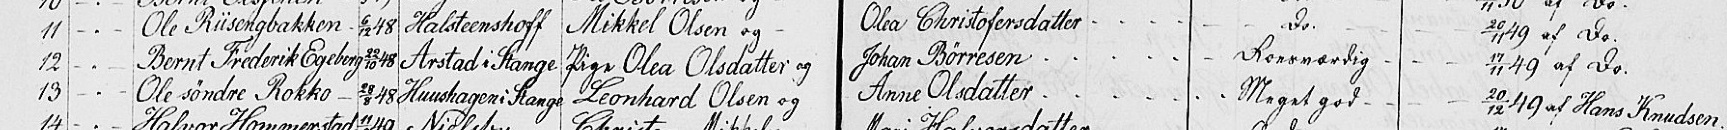 11 - . - Ole Rüsengbakken - 6/12 48 Halsteenshoff Mikkel Olsen og - Olea Christofersdatter - - - - - Do. - - - 20/11 49 af Do.
12 - . - Bernt Frederik Egeberg 22/10 48 Arstad i Stange Pige Olea Olsdatter og Johan Börresen . - - - - - Roesværdig - - - 17/11 49 af Do.
13 - . - Ole söndre Rokko - 28/8 48 Huushagen i Stange Leonhard Olsen og Anne Olsdatter . - - - - - Meget god - - - 20/12 49 af Hans Knudsen
14 - . - Halvor Hommerstad 11/ 49